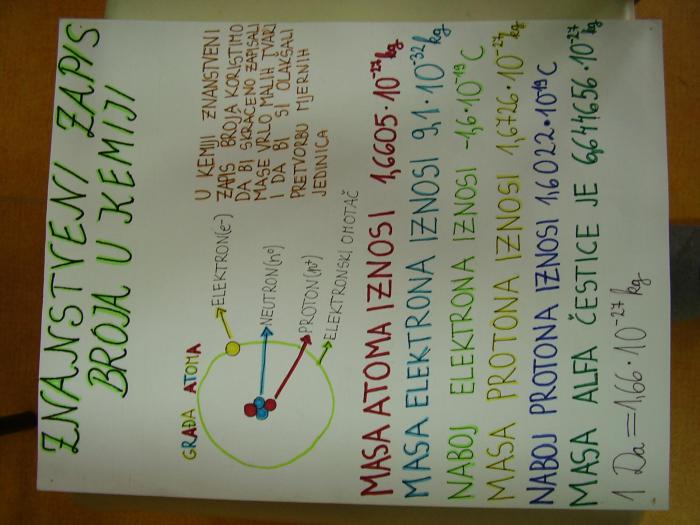 ZNANSTVENI ZAPIS
BROJA U KEMIJI
U KEMIJI ZNANSTVENI
ZAPIS BROJA KORISTIMO
DA BI SKRAĆENO ZAPISALI
MASE VRLO MALIH TVARI
I DA BI SI OLAKŠALI
PRETVORBU MJERNIH
JEDINICA
GRAĐA ATOMA
ELEKTRON(e⁻)
NEUTRON(n⁰)
PROTON(p⁺)
ELEKTRONSKI OMOTAČ
MASA ATOMA IZNOSI 1,6605·10⁻²⁷ kg
MASA ELEKTRONA IZNOSI 9,1·10⁻³² kg
NABOJ ELEKTRONA IZNOSI -1,6·10⁻¹⁹ C
MASA PROTONA IZNOSI 1,6726·10⁻²⁷ kg
NABOJ PROTONA IZNOSI 1,6022·10⁻¹⁹ C
MASA ALFA ČESTICE JE 6,644656·10⁻²⁷ kg
1 Da = 1,66·10⁻²⁷ kg